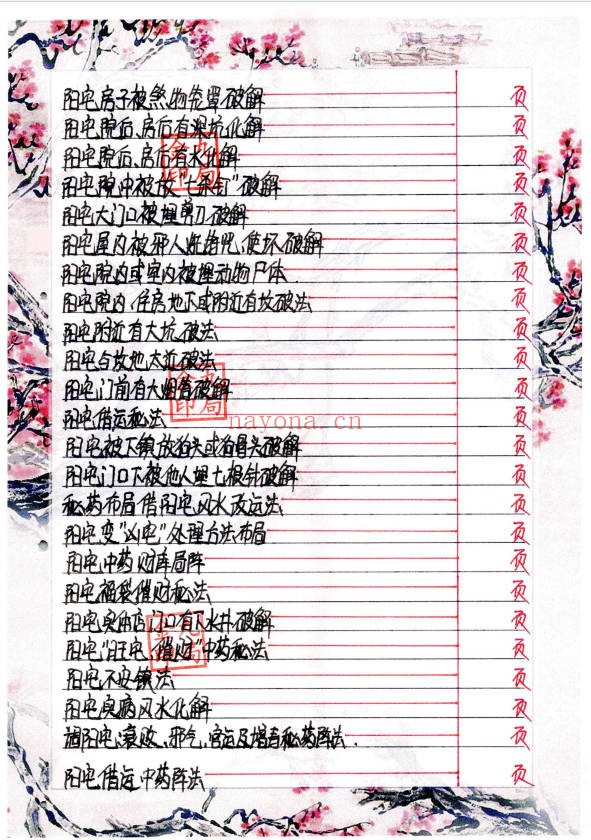 阳宅房子被煞物笼罩破解 页
阳宅院后、房后有深坑化解 页
阳宅院后、房后有水化解 页
阳宅院中被放“七杀钉”破解 页
阳宅大门口被埋剪刀破解 页
阳宅屋内被邪人使坏破解 页
阳宅院内或室内被埋动物尸体. 页
阳宅院内、住房地下或附近有坟破法 页
阳宅附近有大坑破法 页
阳宅与坟地太近破法 页
阳宅门前有大烟筒破解 页
阳宅借运秘法 页
nayona.cn
阳宅被下镇放狗头或狗骨头破解 页
阳宅门口下被他人埋七根针破解 页
秘药布局借阳宅风水改运法 页
阳宅变“凶宅”处理方法布局 页
阳宅中药财库局阵 页
阳宅福袋催财秘法 页
阳宅门口有下水井破解 页
阳宅“旺宅、催财”中药秘法 页
阳宅不安镇法 页
阳宅病风水化解 页
调阳宅衰败、邪气、官运及增寿秘药阵法. 页
阳宅借运中药阵法 页